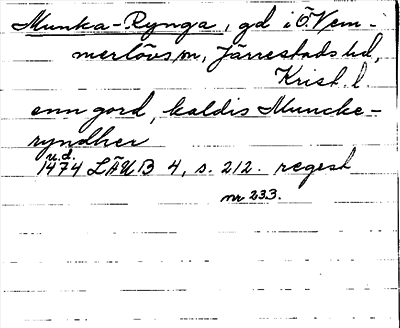 Munka-Rynga, gd i Ö Vem-
merlövs sn, Järrestads hd,
Krist. l.
enn gord, kaldis Muncke-
ryndher
u.d.
1474 LÄUB 4, s. 212. regest
nr 233.